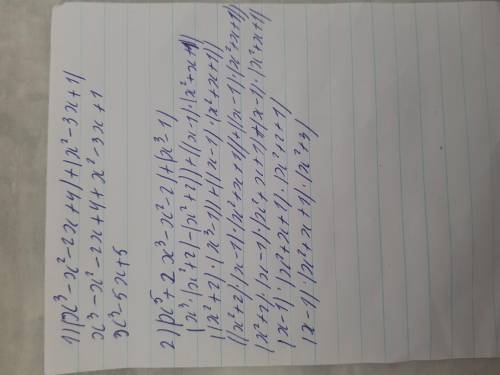 1) (x³-x²-2x+4)+(x²-3x+1)
x³-x²-2x+4+x²-3x+1
x³-5x+5
2) (x⁵+2x³-x²-2)+(x³-1)
(x³·(x²+2)-(x²+2))+((x-1)·(x²+x+1))
((x²+2)·(x³-1))+((x-1)·(x²+x+1))
((x²+2)·(x-1)·(x²+x+1))+((x-1)·(x²+x+1))
(x²+2)·(x-1)·(x²+x+1)+(x-1)·(x²+x+1)
(x-1)·(x²+x+1)·(x²+2+1)
(x-1)·(x²+x+1)·(x²+3)